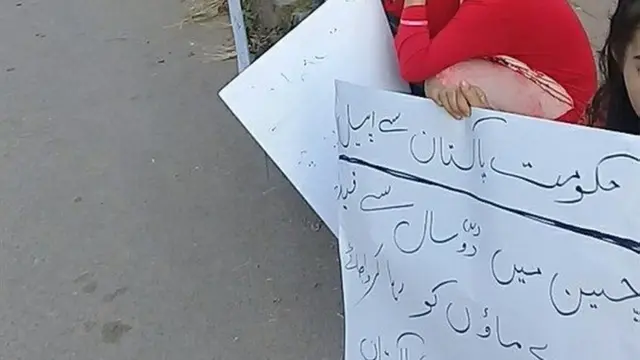 حکومت پاکستان سے اپیل
چین میں دو سال سے
ماؤں کو رہا کروایا جائے
پاکستان